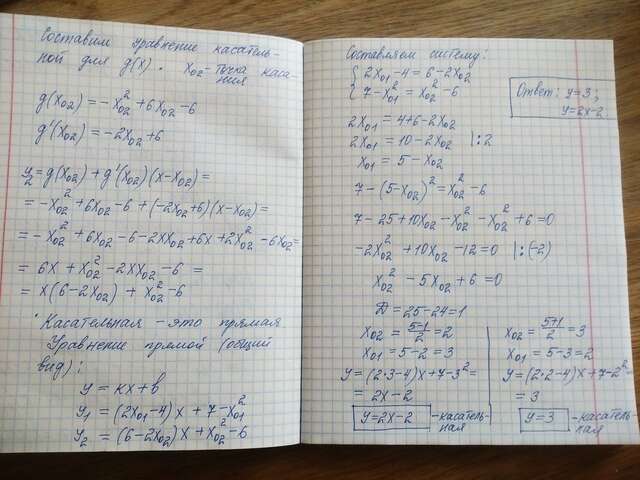 Составим уравнение касатель-
ной для g(x). x₀₂ - точка каса-
ния
g(x₀₂) = -x₀₂² + 6x₀₂ - 6
g'(x₀₂) = -2x₀₂ + 6
y₂ = g(x₀₂) + g'(x₀₂)(x - x₀₂) =
= -x₀₂² + 6x₀₂ - 6 + (-2x₀₂ + 6)(x - x₀₂) =
= -x₀₂² + 6x₀₂ - 6 - 2xx₀₂ + 6x + 2x₀₂² - 6x₀₂ =
= 6x + x₀₂² - 2xx₀₂ - 6 =
= x(6 - 2x₀₂) + x₀₂² - 6
Касательная - это прямая
Уравнение прямой (общий
вид):
y = kx + b
y₁ = (2x₀₁ - 4)x + 7 - x₀₁²
y₂ = (6 - 2x₀₂)x + x₀₂² - 6
Составляем систему:
{ 2x₀₁ - 4 = 6 - 2x₀₂
{ 7 - x₀₁² = x₀₂² - 6
Ответ: y = 3;
y = 2x - 2
2x₀₁ = 4 + 6 - 2x₀₂
2x₀₁ = 10 - 2x₀₂ |:2
x₀₁ = 5 - x₀₂
7 - (5 - x₀₂)² = x₀₂² - 6
7 - 25 + 10x₀₂ - x₀₂² - x₀₂² + 6 = 0
-2x₀₂² + 10x₀₂ - 12 = 0 |:(-2)
x₀₂² - 5x₀₂ + 6 = 0
D = 25 - 24 = 1
x₀₂ = (5-1)/2 = 2
x₀₁ = 5 - 2 = 3
y = (2·3 - 4)x + 7 - 3² =
= 2x - 2
y = 2x - 2 - касатель-
ная
x₀₂ = (5+1)/2 = 3
x₀₁ = 5 - 3 = 2
y = (2·2 - 4)x + 7 - 2² =
= 3
y = 3 - касатель-
ная